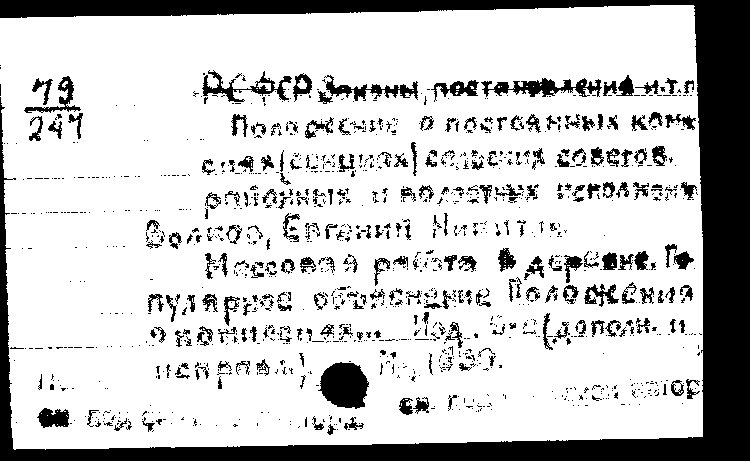 79
247
РСФСР Законы, постановления и.т.п
Положение о постоянных комис
сиях (секциях) сельских советов.
районных и волостных исполкомах
Волков, Евгений Никитов
Массовая работа в деревне. По
пулярное объяснение Положения
о комиссиях... Изд. 6-е (дополн. и
исправл.) М., 1930.
см. под
см. под автор